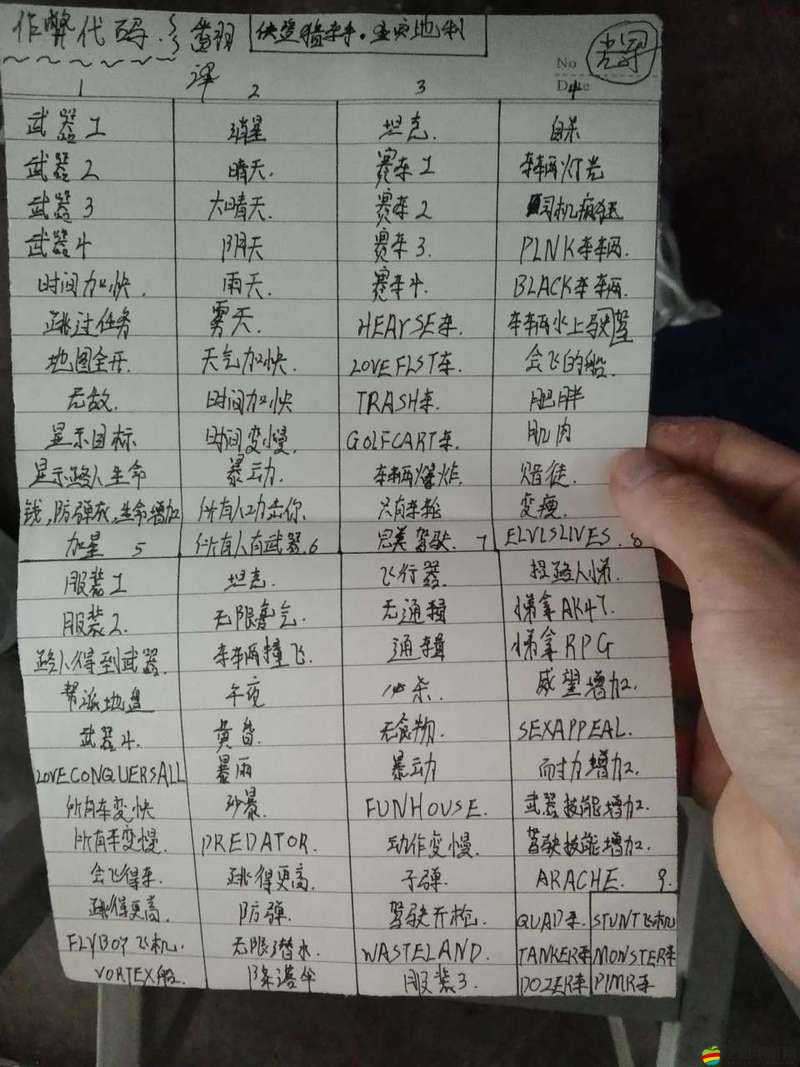 作弊代码
No
Date
1 2 3 4
武器1 消星 坦克. 自杀
武器2 晴天. 赛车1 车辆灯光
武器3 大晴天. 赛车2 司机疯狂
武器4 阴天 赛车3. PLNK车辆.
时间加快. 雨天. 赛车4. BLACK车辆.
跳过任务 雾天. HEARSE车. 车辆水上驾驶
地图全开. 天气加快. LOVEFLST车. 会飞的船.
无敌. 时间加快 TRASH车. 肥胖
显示目标 时间变慢. GOLFCART车. 肌肉
显示路人生命 暴动. 车辆爆炸. 赌徒.
钱,防弹衣,生命增加 所有人功击你. 只有车轮 变瘦.
加星 5 所有人有武器.6 完美驾驶. 7 ELVLSLIVES. 8
服装1 坦克. 飞行器. 招路人.
服装2. 无限氧气. 无通缉 拿AK47.
路人得到武器. 车辆撞飞. 通缉 拿RPG
帮派地盘 午夜 必杀. 威望增加.
武器4. 黄昏. 无食物. SEXAPPEAL.
LOVECONQUERSALL 暴雨 暴动 耐力增加.
所有车变快 沙暴. FUNHOUSE. 武器技能增加.
所有车变慢. PREDATOR. 动作变慢. 驾驶技能增加.
会飞得车. 跳得更高. 子弹. ARACHE. 9.
跳得更高. 防弹. 驾驶开枪. QUAD车. STUNT飞机
FLYBOY飞机. 无限潜水. WASTELAND. TANKER车 MONSTER车
VORTEX船. 降落伞 服装3. DOZER车 PIMR车